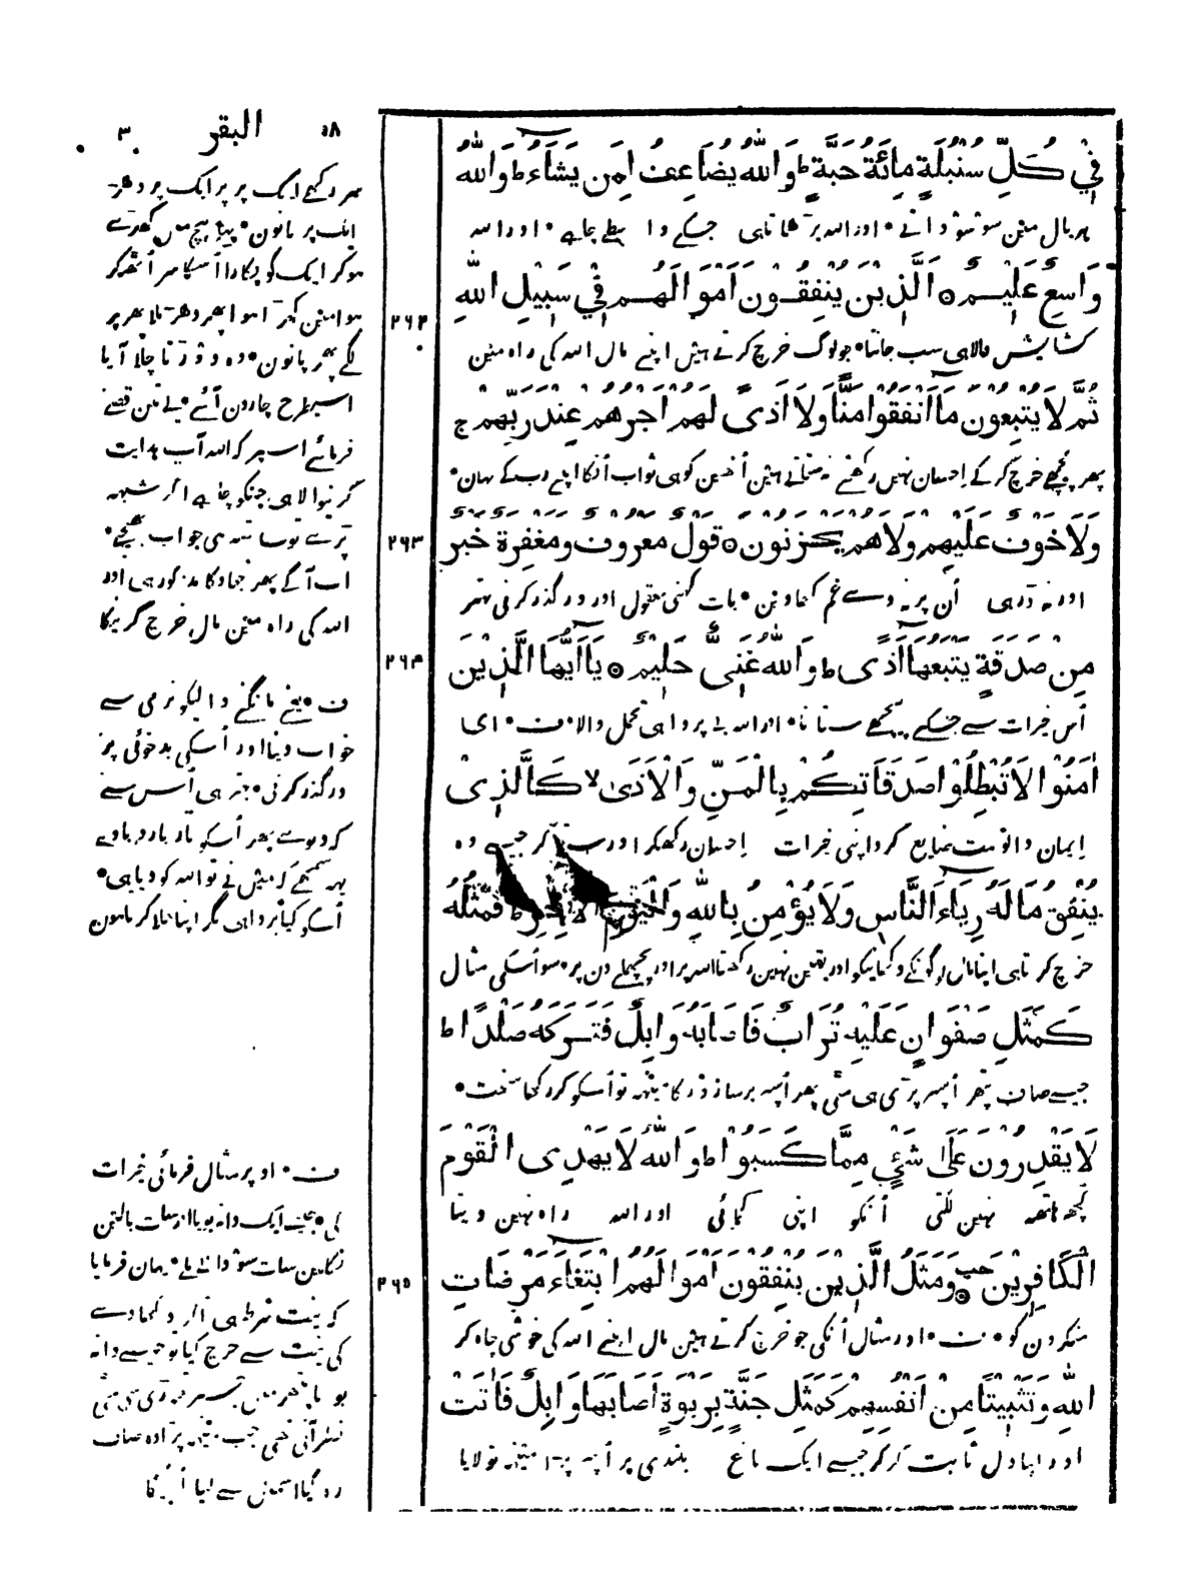 ۵۸ البقر ۳
فِيْ كُلِّ سُنْبُلَةٍ مِائَةُ حَبَّةٍ ط وَاللّٰهُ يُضَاعِفُ لِمَن يَشَاءُ ط وَاللّٰهُ
ہر بال مین سو سو دانے • اور اللہ بڑھاتا ہی جسکے واسطے چاہے • اور اللہ
وَاسِعٌ عَلِيْمٌ ۝ اَلَّذِيْنَ يُنْفِقُوْنَ اَمْوَالَهُمْ فِيْ سَبِيْلِ اللّٰهِ
۲۶۲
کشایش والا ہی سب جانتا • جو لوگ خرچ کرتے ہین اپنے مال اللہ کی راہ مین
ثُمَّ لَا يُتْبِعُوْنَ مَا اَنْفَقُوْا مَنًّا وَلَا اَذًى لَهُمْ اَجْرُهُمْ عِنْدَ رَبِّهِمْ ج
پھر پیچھے خرچ کر کے احسان نہیں رکھتے نہ ستاتے ہین اُنھین کو ہی ثواب اُنکا اپنے رب کے یہان •
وَلَا خَوْفٌ عَلَيْهِمْ وَلَا هُمْ يَحْزَنُوْنَ ۝ قَوْلٌ مَعْرُوْفٌ وَمَغْفِرَةٌ خَيْرٌ
۲۶۳
اور نہ ڈر ہی اُن پر نہ وے غم کھاوین • بات کہنی معقول اور درگذر کرنی بہتر
مِنْ صَدَقَةٍ يَتْبَعُهَا اَذًى ط وَاللّٰهُ غَنِيٌّ حَلِيْمٌ ۝ يَا اَيُّهَا الَّذِيْنَ
۲۶۴
اُس خیرات سے جسکے پیچھے ستانا • اور اللہ بے پروا ہی تحمل والا • ف • ای
اٰمَنُوْا لَا تُبْطِلُوْا صَدَقَاتِكُمْ بِالْمَنِّ وَالْاَذَى لا كَالَّذِيْ
ایمان والو مت ضایع کرو اپنی خیرات احسان رکھکر اور ستا کر جیسے وہ
يُنْفِقُ مَالَهُ رِيَاءَ النَّاسِ وَلَا يُؤْمِنُ بِاللّٰهِ وَالْيَوْمِ الْاٰخِرِ ط فَمَثَلُهُ
خرچ کرتا ہی اپنا مال لوگونکے دکھانیکو اور یقین نہین رکھتا اللہ پر اور پچھلے دن پر • سو اُسکی مثال
كَمَثَلِ صَفْوَانٍ عَلَيْهِ تُرَابٌ فَاَصَابَهُ وَابِلٌ فَتَرَكَهُ صَلْدًا ط
جیسے صاف پتھر اُسپر پڑی ہی مٹی پھر اُسپہ برسا زور کا مینھہ تو اُسکو کر رکھا سخت •
لَا يَقْدِرُوْنَ عَلٰى شَيْءٍ مِمَّا كَسَبُوْا ط وَاللّٰهُ لَا يَهْدِى الْقَوْمَ
کچھ ہاتھہ نہین لگتی اُنکو اپنی کمائی اور اللہ راہ نہین دیتا
الْكَافِرِيْنَ ۝ وَمَثَلُ الَّذِيْنَ يُنْفِقُوْنَ اَمْوَالَهُمُ ابْتِغَاءَ مَرْضَاتِ
۲۶۵
منکرون کو • ف • اور مثال اُنکی جو خرچ کرتے ہین مال اپنے اللہ کی خوشی چاہ کر
اللّٰهِ وَتَثْبِيْتًا مِنْ اَنْفُسِهِمْ كَمَثَلِ جَنَّةٍ بِرَبْوَةٍ اَصَابَهَا وَابِلٌ فَاٰتَتْ
اور اپنا دل ثابت کر کر جیسے ایک باغ بلندی پر اُسپہ پڑا مینھہ تو لایا
سر رکھے ایک پر پر ایک پر دھڑ
ایک پر پانون • بیچ مین کھڑے
ہو کر ایک کو پکارا اُسکا سر اُٹھکر
ہوا مین کھڑا ہوا پھر دھڑ ملا پھر پر
لگے پھر پانون • وہ دوڑتا چلا آیا
اسیطرح چارون آئے • یے تین قصے
فرمائے اسپر کہ اللہ آپ ہدایت
کرنیوالا ہی جنکو چاہے اگر شبہہ
پڑے تو ساتھہ ہی جواب بھیجے •
اب آگے پھر جہاد کا مذکور ہی اور
اللہ کی راہ مین مال خرچ کرنیکا
ف • یعنے مانگنے والیکو نرمی سے
جواب دینا اور اُسکی بدخوئی پر
درگذر کرنی • بہتر ہی اُس سے
کہ دیوے پھر اُسکو بار بار دباوے
یہہ سمجھے کہ مین نے تو اللہ کو دیا ہی •
اُسکو کیا پروا ہی مگر اپنا بھلا کرتا ہون
ف • اوپر مثال فرمائی خیرات
کی • جیسے ایک دانہ بویا اور سات بالین
نکلین سات سو دانے ملے • یہان فرمایا
کہ نیت شرط ہی اگر دکھاوے
کی نیت سے خرچ کیا تو جیسے دانہ
بویا پتھر مین جسپر تھوڑی سی مٹی
نظر آتی تھی جب مینھہ پڑا وہ صاف
رہ گیا اسمین سے کیا اُگیگا